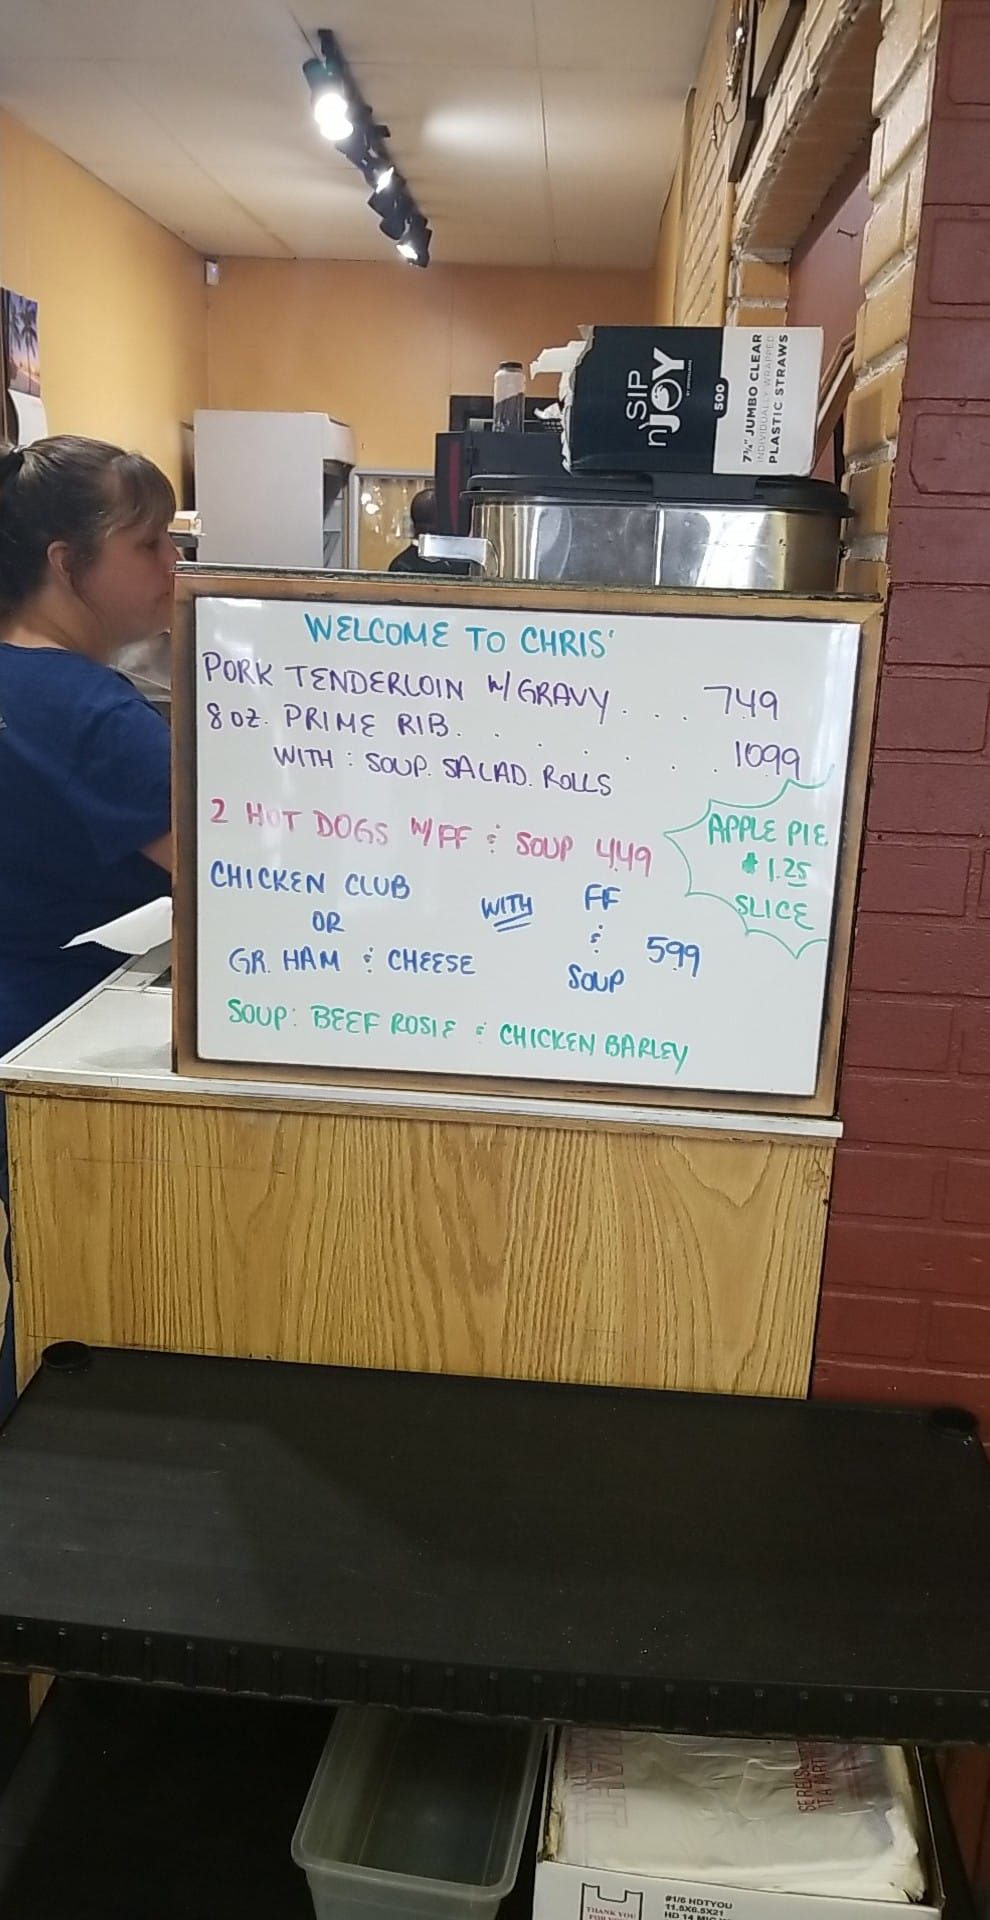 n'SIP
JOY
500
7¾" JUMBO CLEAR
INDIVIDUALLY WRAPPED
PLASTIC STRAWS
WELCOME TO CHRIS'
PORK TENDERLOIN W/ GRAVY . . . 749
8 OZ. PRIME RIB. . . . . . . 1099
WITH : SOUP. SALAD. ROLLS
2 HOT DOGS W/FF & SOUP 449
APPLE PIE
$1.25
SLICE
CHICKEN CLUB
OR
GR. HAM & CHEESE
WITH
FF
&
SOUP
599
SOUP: BEEF ROSIE & CHICKEN BARLEY
THANK YOU
#1/6 HDTYOU
11.5X6.5X21
HD 14